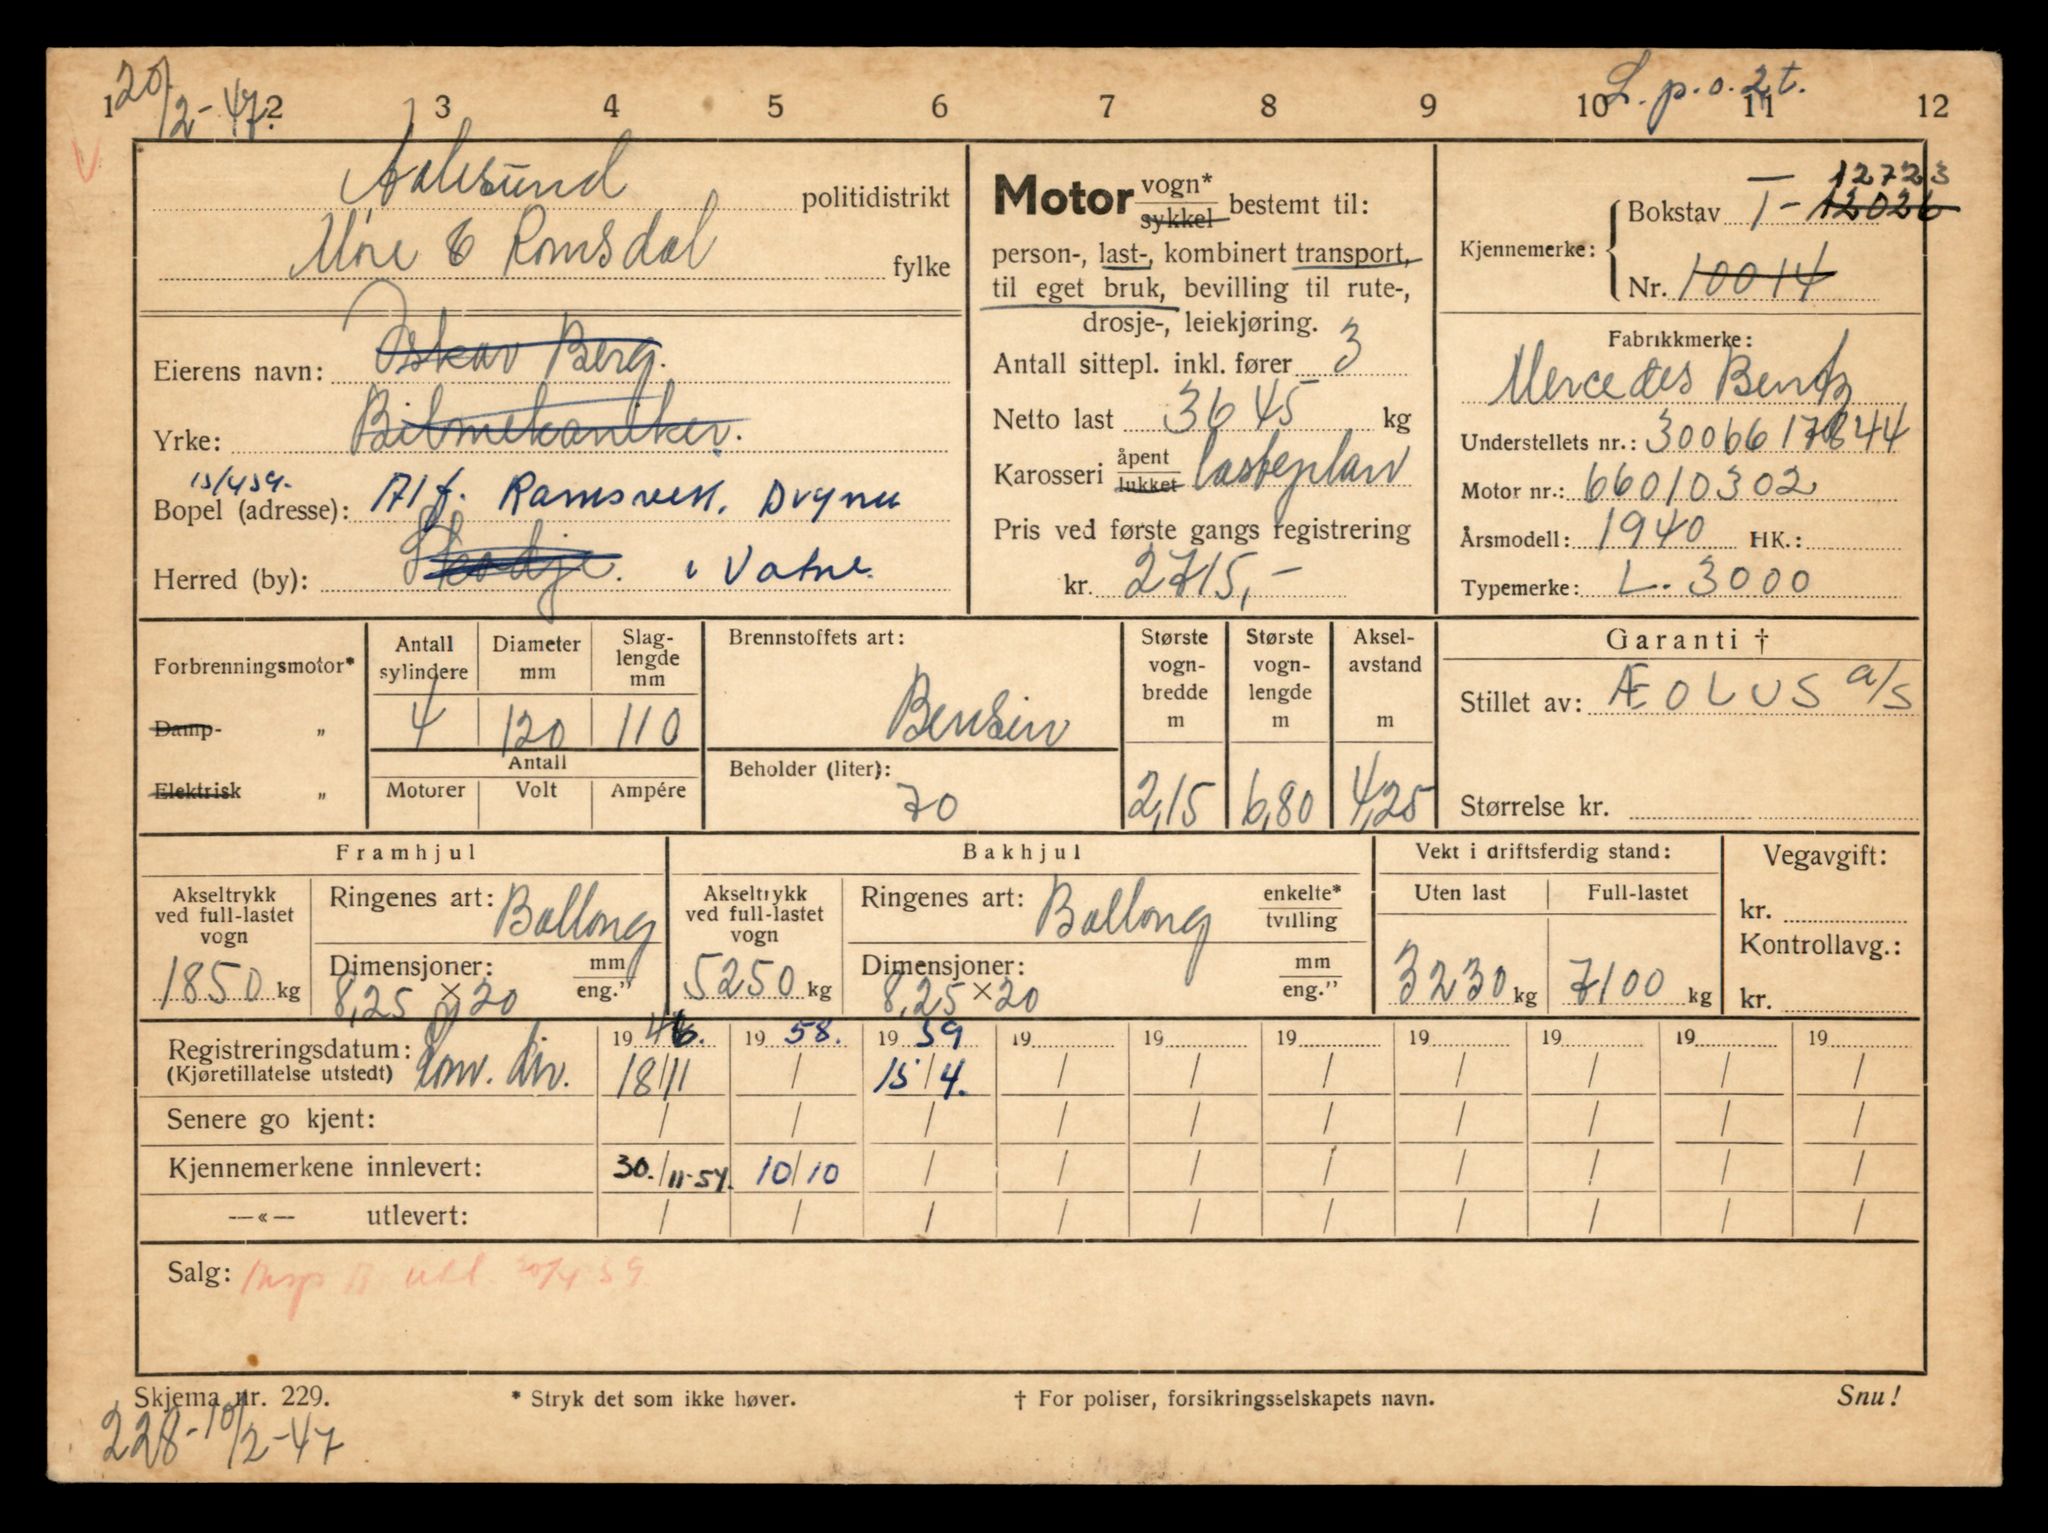 20/2-47.
L. p. o. 2 t.
1 2 3 4 5 6 7 8 9 10 11 12
V
Aalesund politidistrikt
Møre & Romsdal fylke
Eierens navn: Oskar Berg.
Yrke: Bilmekaniker.
15/4 59.
Bopel (adresse): Alf. Ramsvik, Drynu
Herred (by): Skodje. i Vatne.
Motor vogn*
sykkel bestemt til:
person-, last-, kombinert transport,
til eget bruk, bevilling til rute-,
drosje-, leiekjøring.
Antall sittepl. inkl. fører 3
Netto last 3645 kg
Karosseri åpent
lukket lasteplan
Pris ved første gangs registrering
kr. 2715,-
12723
Kjennemerke: Bokstav T- 12026
Nr. 10014
Fabrikkmerke:
Mercedes Bentz
Understellets nr.: 3006617844
Motor nr.: 66010302
Årsmodell: 1940 HK.:
Typemerke: L. 3000
Forbrenningsmotor*
Damp- „
Elektrisk „
Antall sylindere
4
Diameter mm
120
Slag-lengde mm
110
Antall
Motorer Volt Ampére
Brennstoffets art:
Bensin
Beholder (liter):
70
Største vogn-bredde m
2,15
Største vogn-lengde m
6,80
Aksel-avstand m
4,25
Garanti †
Stillet av: ÆOLUS a/s
Størrelse kr.
Framhjul
Akseltrykk
ved full-lastet
vogn
1850 kg
Ringenes art: Ballong
Dimensjoner: mm
8,25 × 20 eng."
Bakhjul
Akseltrykk
ved full-lastet
vogn
5250 kg
Ringenes art: Ballong enkelte*
tvilling
Dimensjoner: mm
8,25 × 20 eng."
Vekt i driftsferdig stand:
Uten last Full-lastet
3230 kg 7100 kg
Vegavgift:
kr.
Kontrollavg.:
kr.
Registreringsdatum: 1946. 1958. 1959 19 19 19 19 19 19 19
(Kjøretillatelse utstedt) Omr. dir. 18/11 / 15/4. / / / / / / /
Senere go kjent: / / / / / / / / / /
Kjennemerkene innlevert: 30./11-54. 10/10 / / / / / / / /
—«— utlevert: / / / / / / / / / /
Salg: utl. 20/4 59
Skjema nr. 229. * Stryk det som ikke høver. † For poliser, forsikringsselskapets navn. Snu!
228-10/2-47